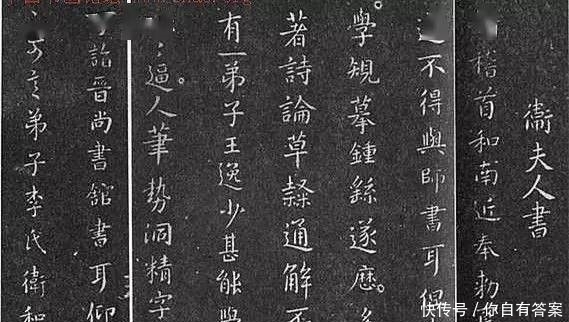 衞夫人書
稽首和南近奉勅
不得與師書耳
學規摹鍾繇遂歴
著詩論草隷通解不
有一弟子王逸少甚能學
逼人筆勢洞精字
詣晉尚書舘書耳仰
弟子李氏衛和
快传号/你自有答案